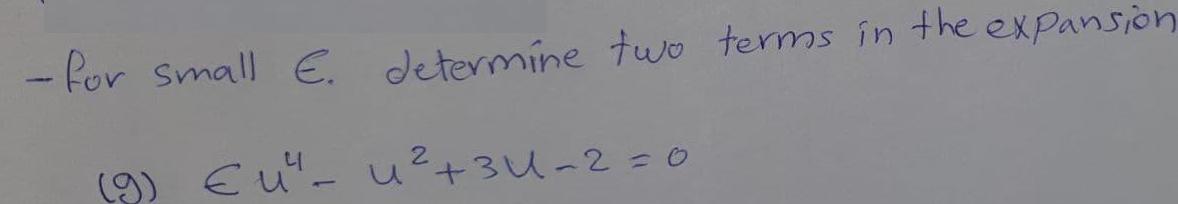 - for small ϵ. determine two terms in the expansion
(g) ϵu⁴ - u² + 3u - 2 = 0